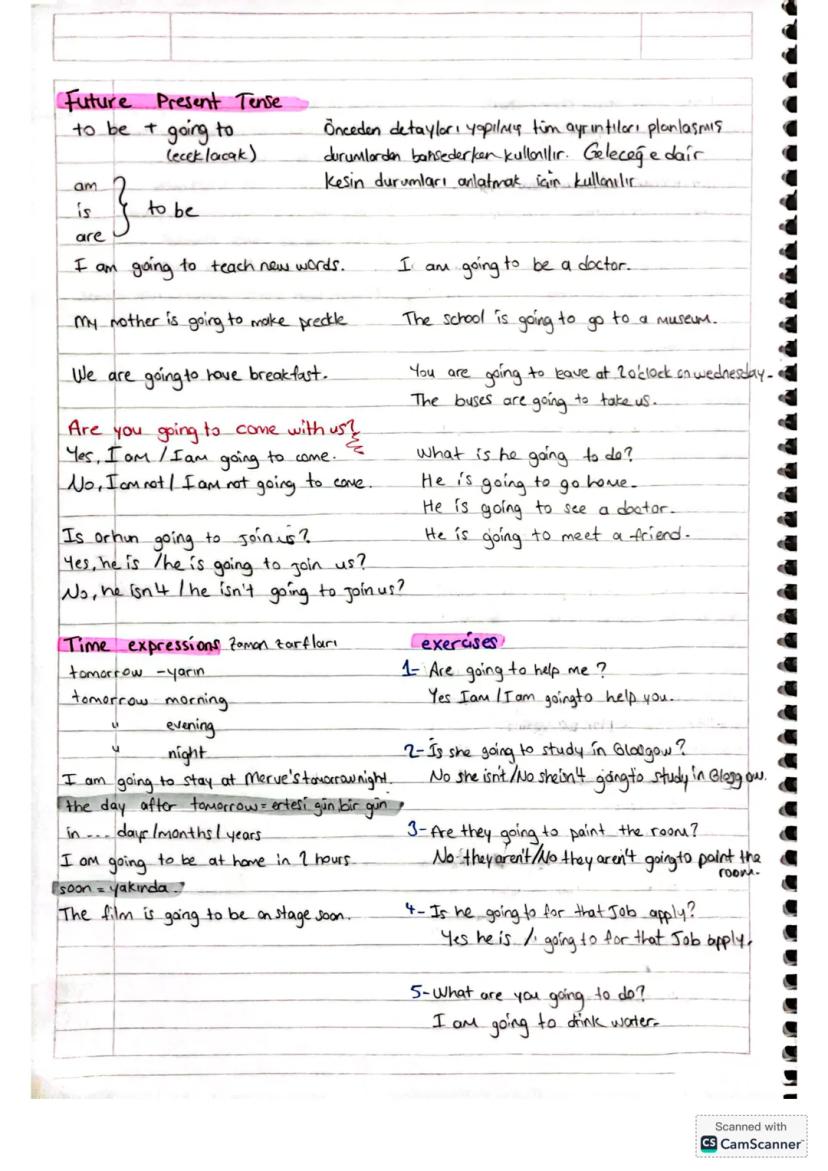 Future Present Tense
to be + going to
(ecek/acak)
Önceden detayları yapılmış tüm ayrıntıları planlaşmış
durumlardan bahsederken kullanılır. Geleceğe dair
kesin durumları anlatmak için kullanılır
am
is
are
to be
I am going to teach new words.
I am going to be a doctor.
My mother is going to make
The school is going to go to a museum.
We are going to have breakfast.
You are going to leave at 2 o'clock on wednesday.
The buses are going to take us.
Are you going to come with us?
Yes, I am / I am going to come.
No, I am not / I am not going to come.
What is he going to do?
He is going to go home.
He is going to see a doctor.
He is going to meet a friend.
Is orhun going to join us?
Yes, he is / he is going to join us?
No, he isn't / he isn't going to join us?
Time expressions zaman zarfları
tomorrow - yarın
tomorrow morning
" evening
" night
I am going to stay at Merve's tomorrow night.
the day after tomorrow = ertesi gün bir gün
in ... days / months / years
I am going to be at home in 2 hours
soon = yakında.
The film is going to be on stage soon.
exercises
1- Are going to help me?
Yes I am / I am going to help you.
2- Is she going to study in Glasgow?
No she isn't / No she isn't going to study in Glasgow.
3- Are they going to paint the room?
No they aren't / No they aren't going to paint the
room.
4- Is he going to for that Job apply?
Yes he is / going to for that Job apply.
5- What are you going to do?
I am going to drink water.
Scanned with
CS CamScanner